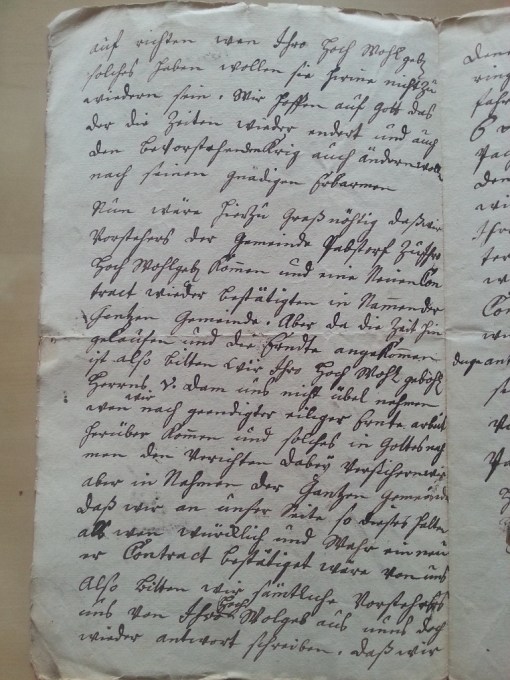 auf richten wen Ihro Hoch Wohlgeb
solches haben wollen sie hirine nicht zu
wiedern sein. Wir hoffen auf Gott das
der die Zeiten wieder endert und auch
den bevorstehenden Krig auch ändern woll
nach seinen gnädigen Erbarmen
Nun wäre hierzu Groß nöhtig daß wir
Vorstehers der Gemeinde Pabstorf zu Ihro
Hoch Wohlgeb Kommen und eine Neuen Con
tract wieder bestätigten in Nammen der
Gantzen Gemeinde. Aber da die Zeit hin
gelaufen und die Erndte angekomen
ist also bitten wir Ihro Hoch Wohl gebohr
Herrns v. Dam uns nicht übel nehmen
wen wir nach geendigter eiliger Ernte arbeit
herüber Kommen und solches in Gottes nah
men den Verichten dabey versichern wir
aber in Nahmen der Gantzen Gemeinde
daß wir an unser Seite so dieses halten
als wen würcklich und Wahr ein neu
er Contract bestätiget wäre von uns
Also bitten wir sämtliche Vorstehers
uns von Ihro Hoch Wolgeb aus uns doch
wieder antwort schreiben. daß wir